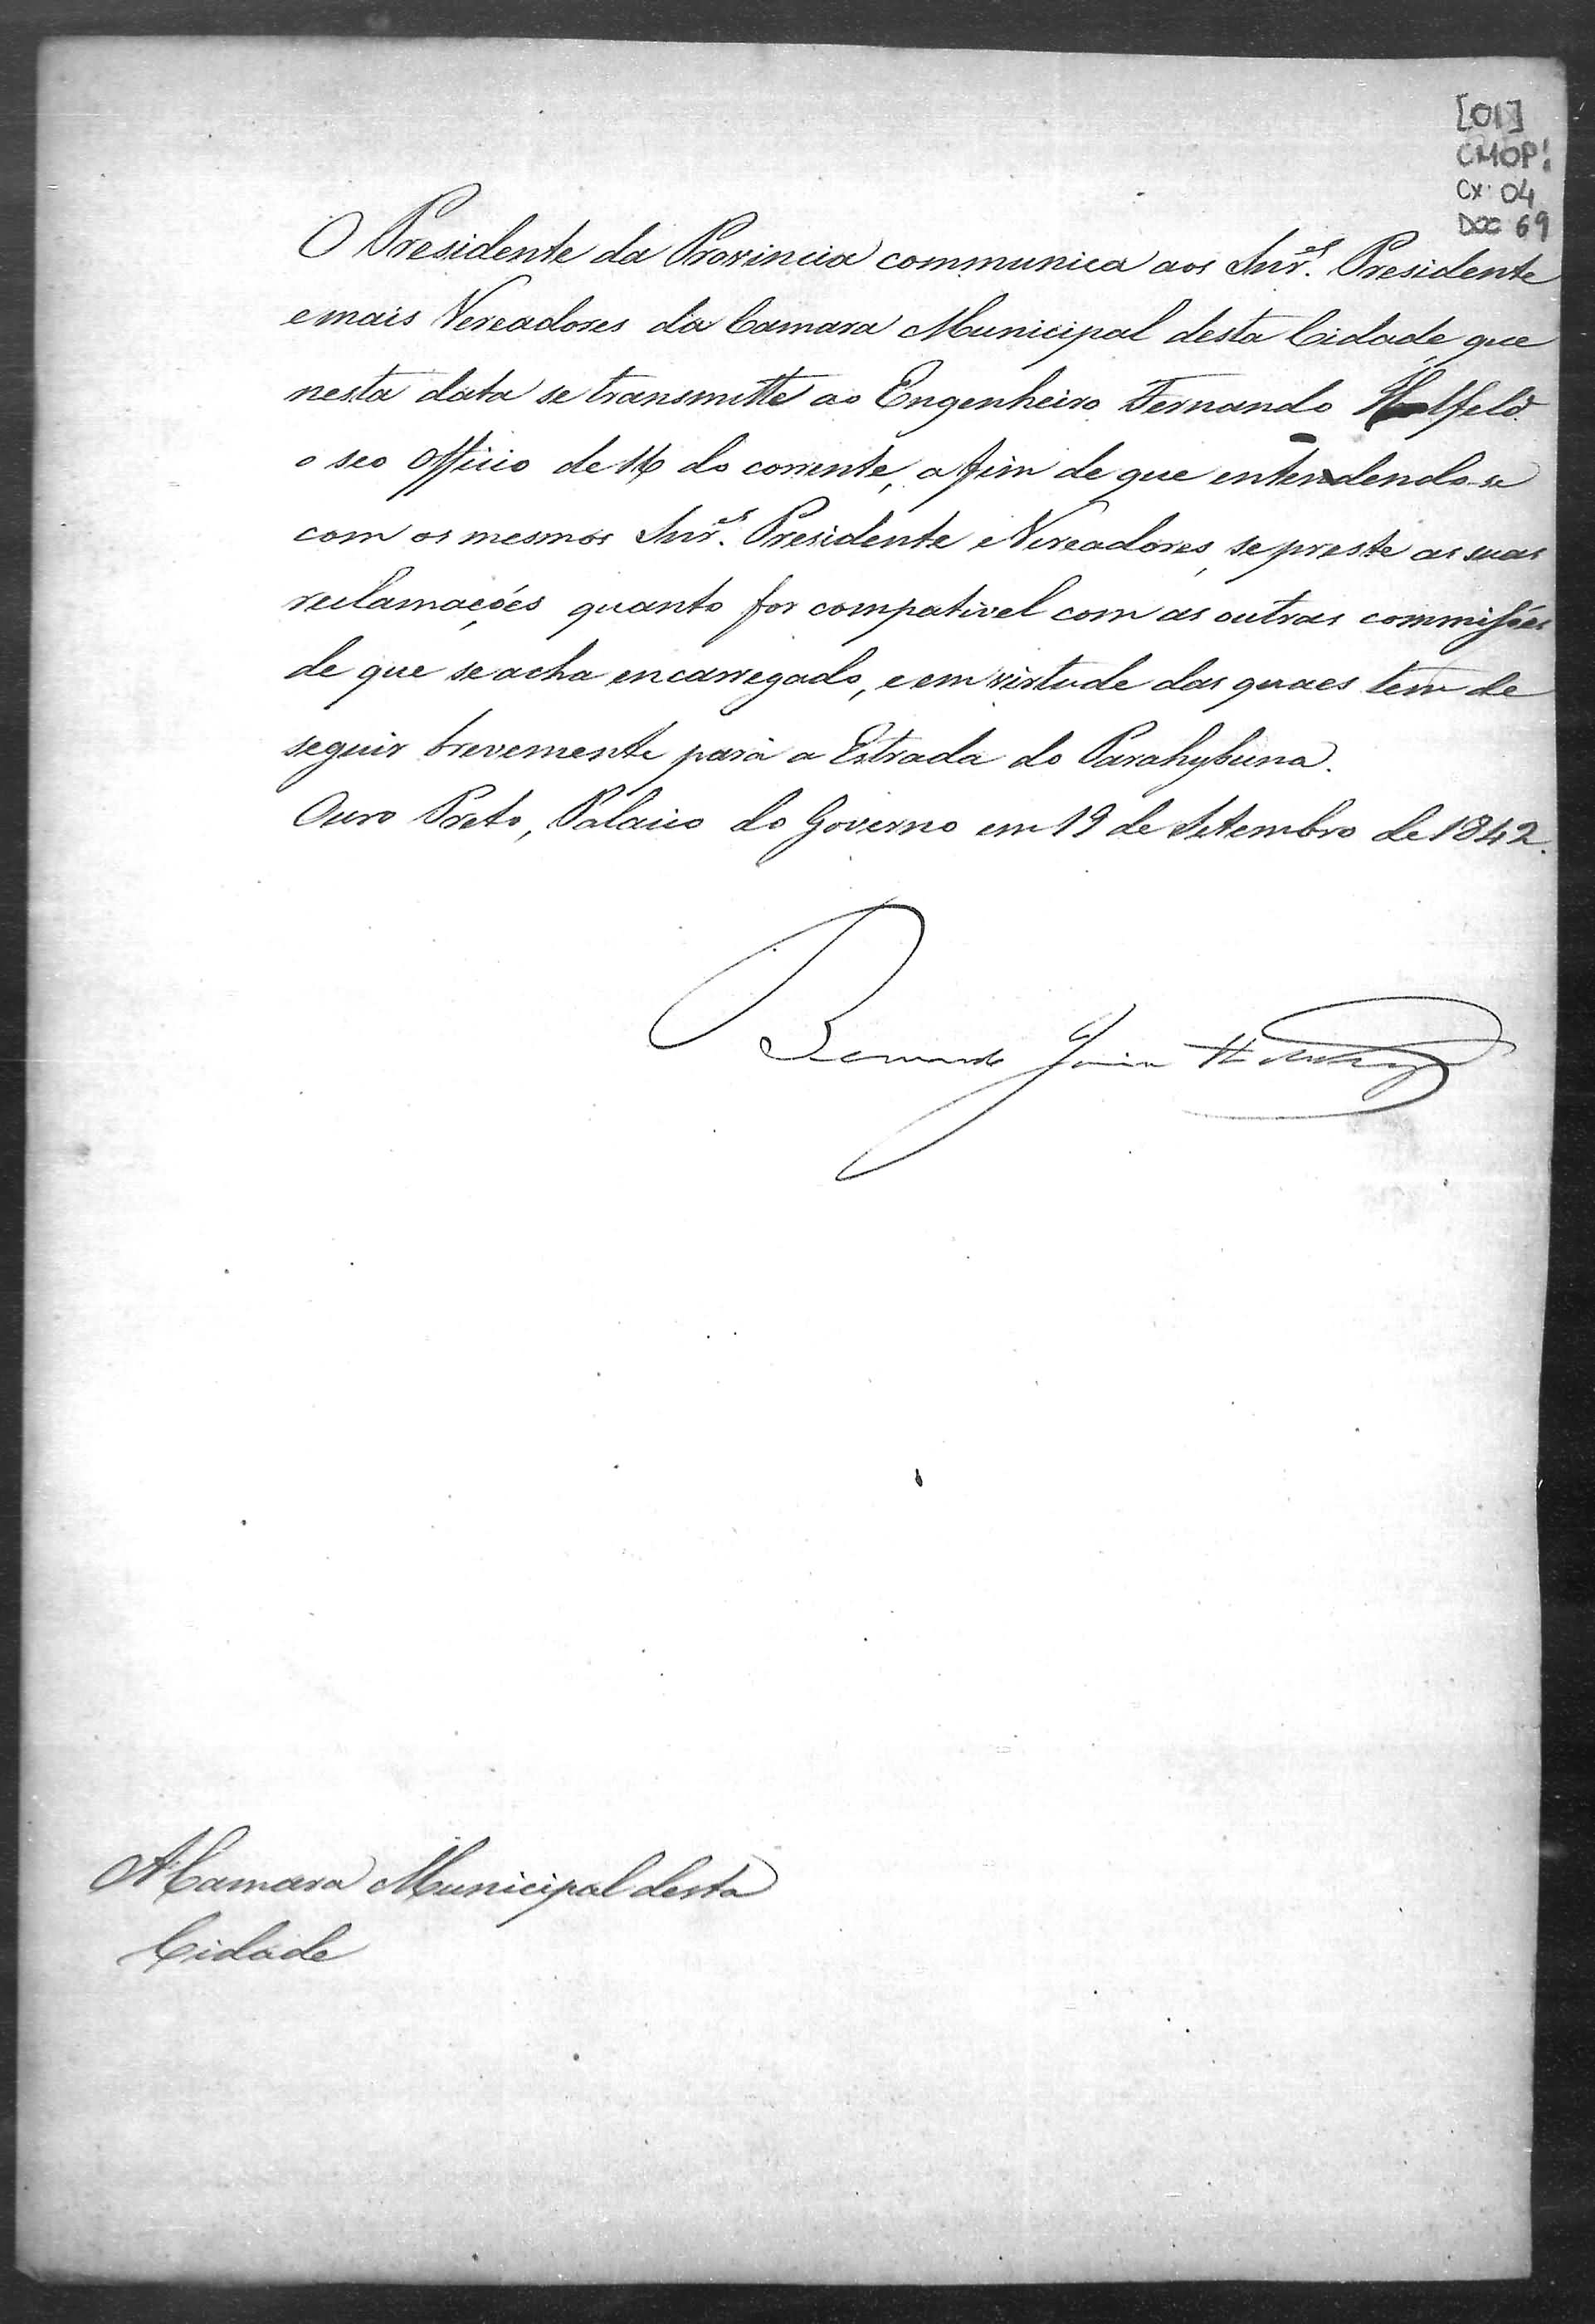 [01]
CMOP:
CX: 04
DOC 69
O Presidente da Provincia communica aos Snrˢ. Presidente
e mais Vereadores da Camara Municipal desta Cidade, que
nesta data se transmitte ao Engenheiro Fernando Halfeld
o seo Officio de 16 do corrente, a fim de que entendendo-se
com os mesmos Snrˢ. Presidente e Vereadores, se preste as suas
reclamações quanto for compativel com as outras commisões
de que se acha encarregado, e em virtude das quaes tem de
seguir brevemente para a Estrada do Parahybuna.
Ouro Preto, Palacio do Governo em 19 de Setembro de 1842.
Bernardo Jacinto
A Camara Municipal desta
Cidade